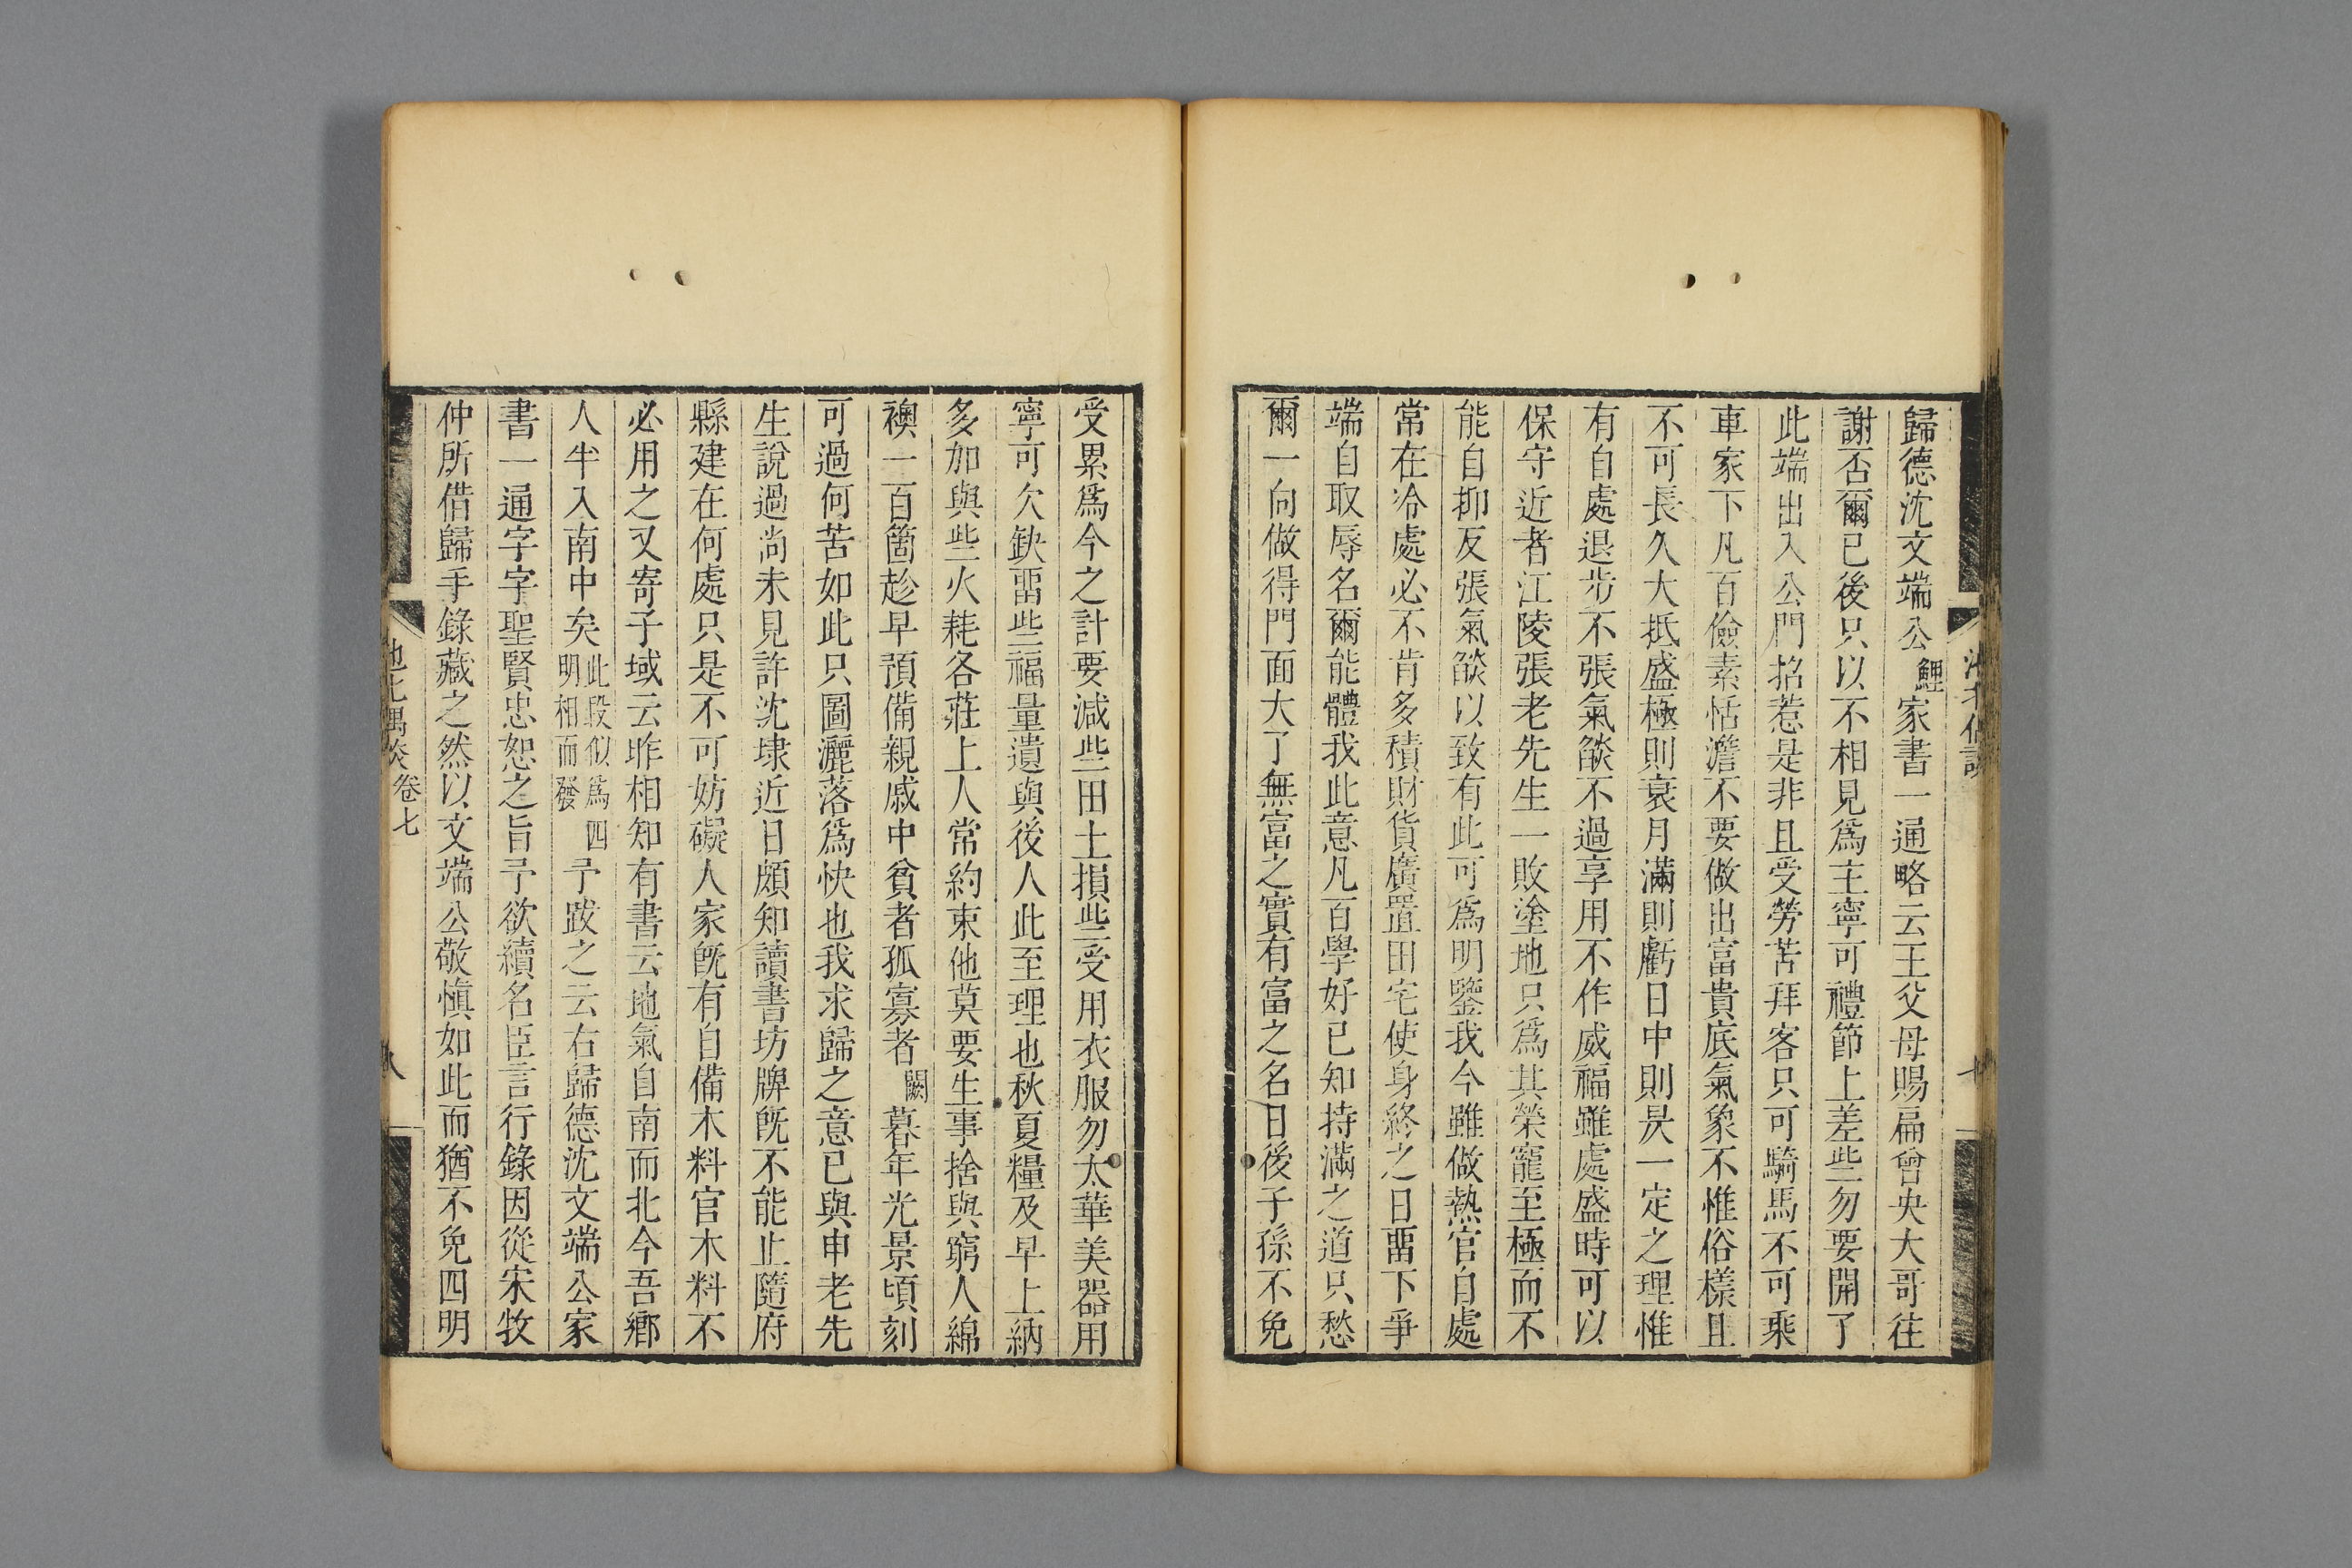 歸德沈文端公鯉家書一通略云王父母賜扁曾央大哥往
謝否爾已後只以不相見爲主寧可禮節上差些勿要開了
此端出入公門招惹是非且受勞苦拜客只可騎馬不可乘
車家下凡百儉素恬澹不要做出富貴底氣象不惟俗樣且
不可長久大抵盛極則衰月滿則虧日中則昃一定之理惟
有自處退步不張氣燄不過享用不作威福雖處盛時可以
保守近者江陵張老先生一敗塗地只爲其榮寵至極而不
能自抑反張氣燄以致有此可爲明鑒我今雖做熱官自處
常在冷處必不肯多積財貨廣置田宅使身終之日畱下爭
端自取辱名爾能體我此意凡百學好已知持滿之道只愁
爾一向做得門面大了無富之實有富之名日後子孫不免
受累爲今之計要減些田土損些受用衣服勿太華美器用
寧可欠缺畱些福量遺與後人此至理也秋夏糧及早上納
多加與些火耗各莊上人常約束他莫要生事捨與窮人綿
襖一百箇趁早預備親戚中貧者孤寡者闕暮年光景頃刻
可過何苦如此只圖灑落爲快也我求歸之意已與申老先
生說過尚未見許沈埭近日頗知讀書坊牌旣不能止隨府
縣建在何處只是不可妨礙人家旣有自備木料官木料不
必用之又寄子域云昨相知有書云地氣自南而北今吾鄉
人半入南中矣此段似爲四明相而發予跋之云右歸德沈文端公家
書一通字字聖賢忠恕之旨予欲續名臣言行錄因從宋牧
仲所借歸手錄藏之然以文端公敬慎如此而猶不免四明
卷七